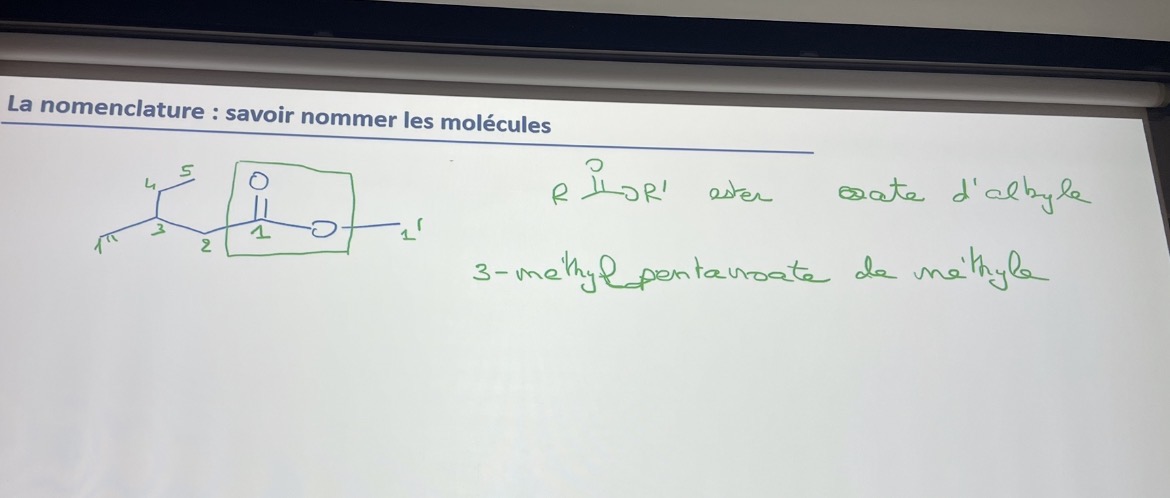 La nomenclature : savoir nommer les molécules
4 5 O
1" 3 2 1 O 1'
O
R OR' ester oate d'alkyle
3-méthyl pentanoate de méthyle